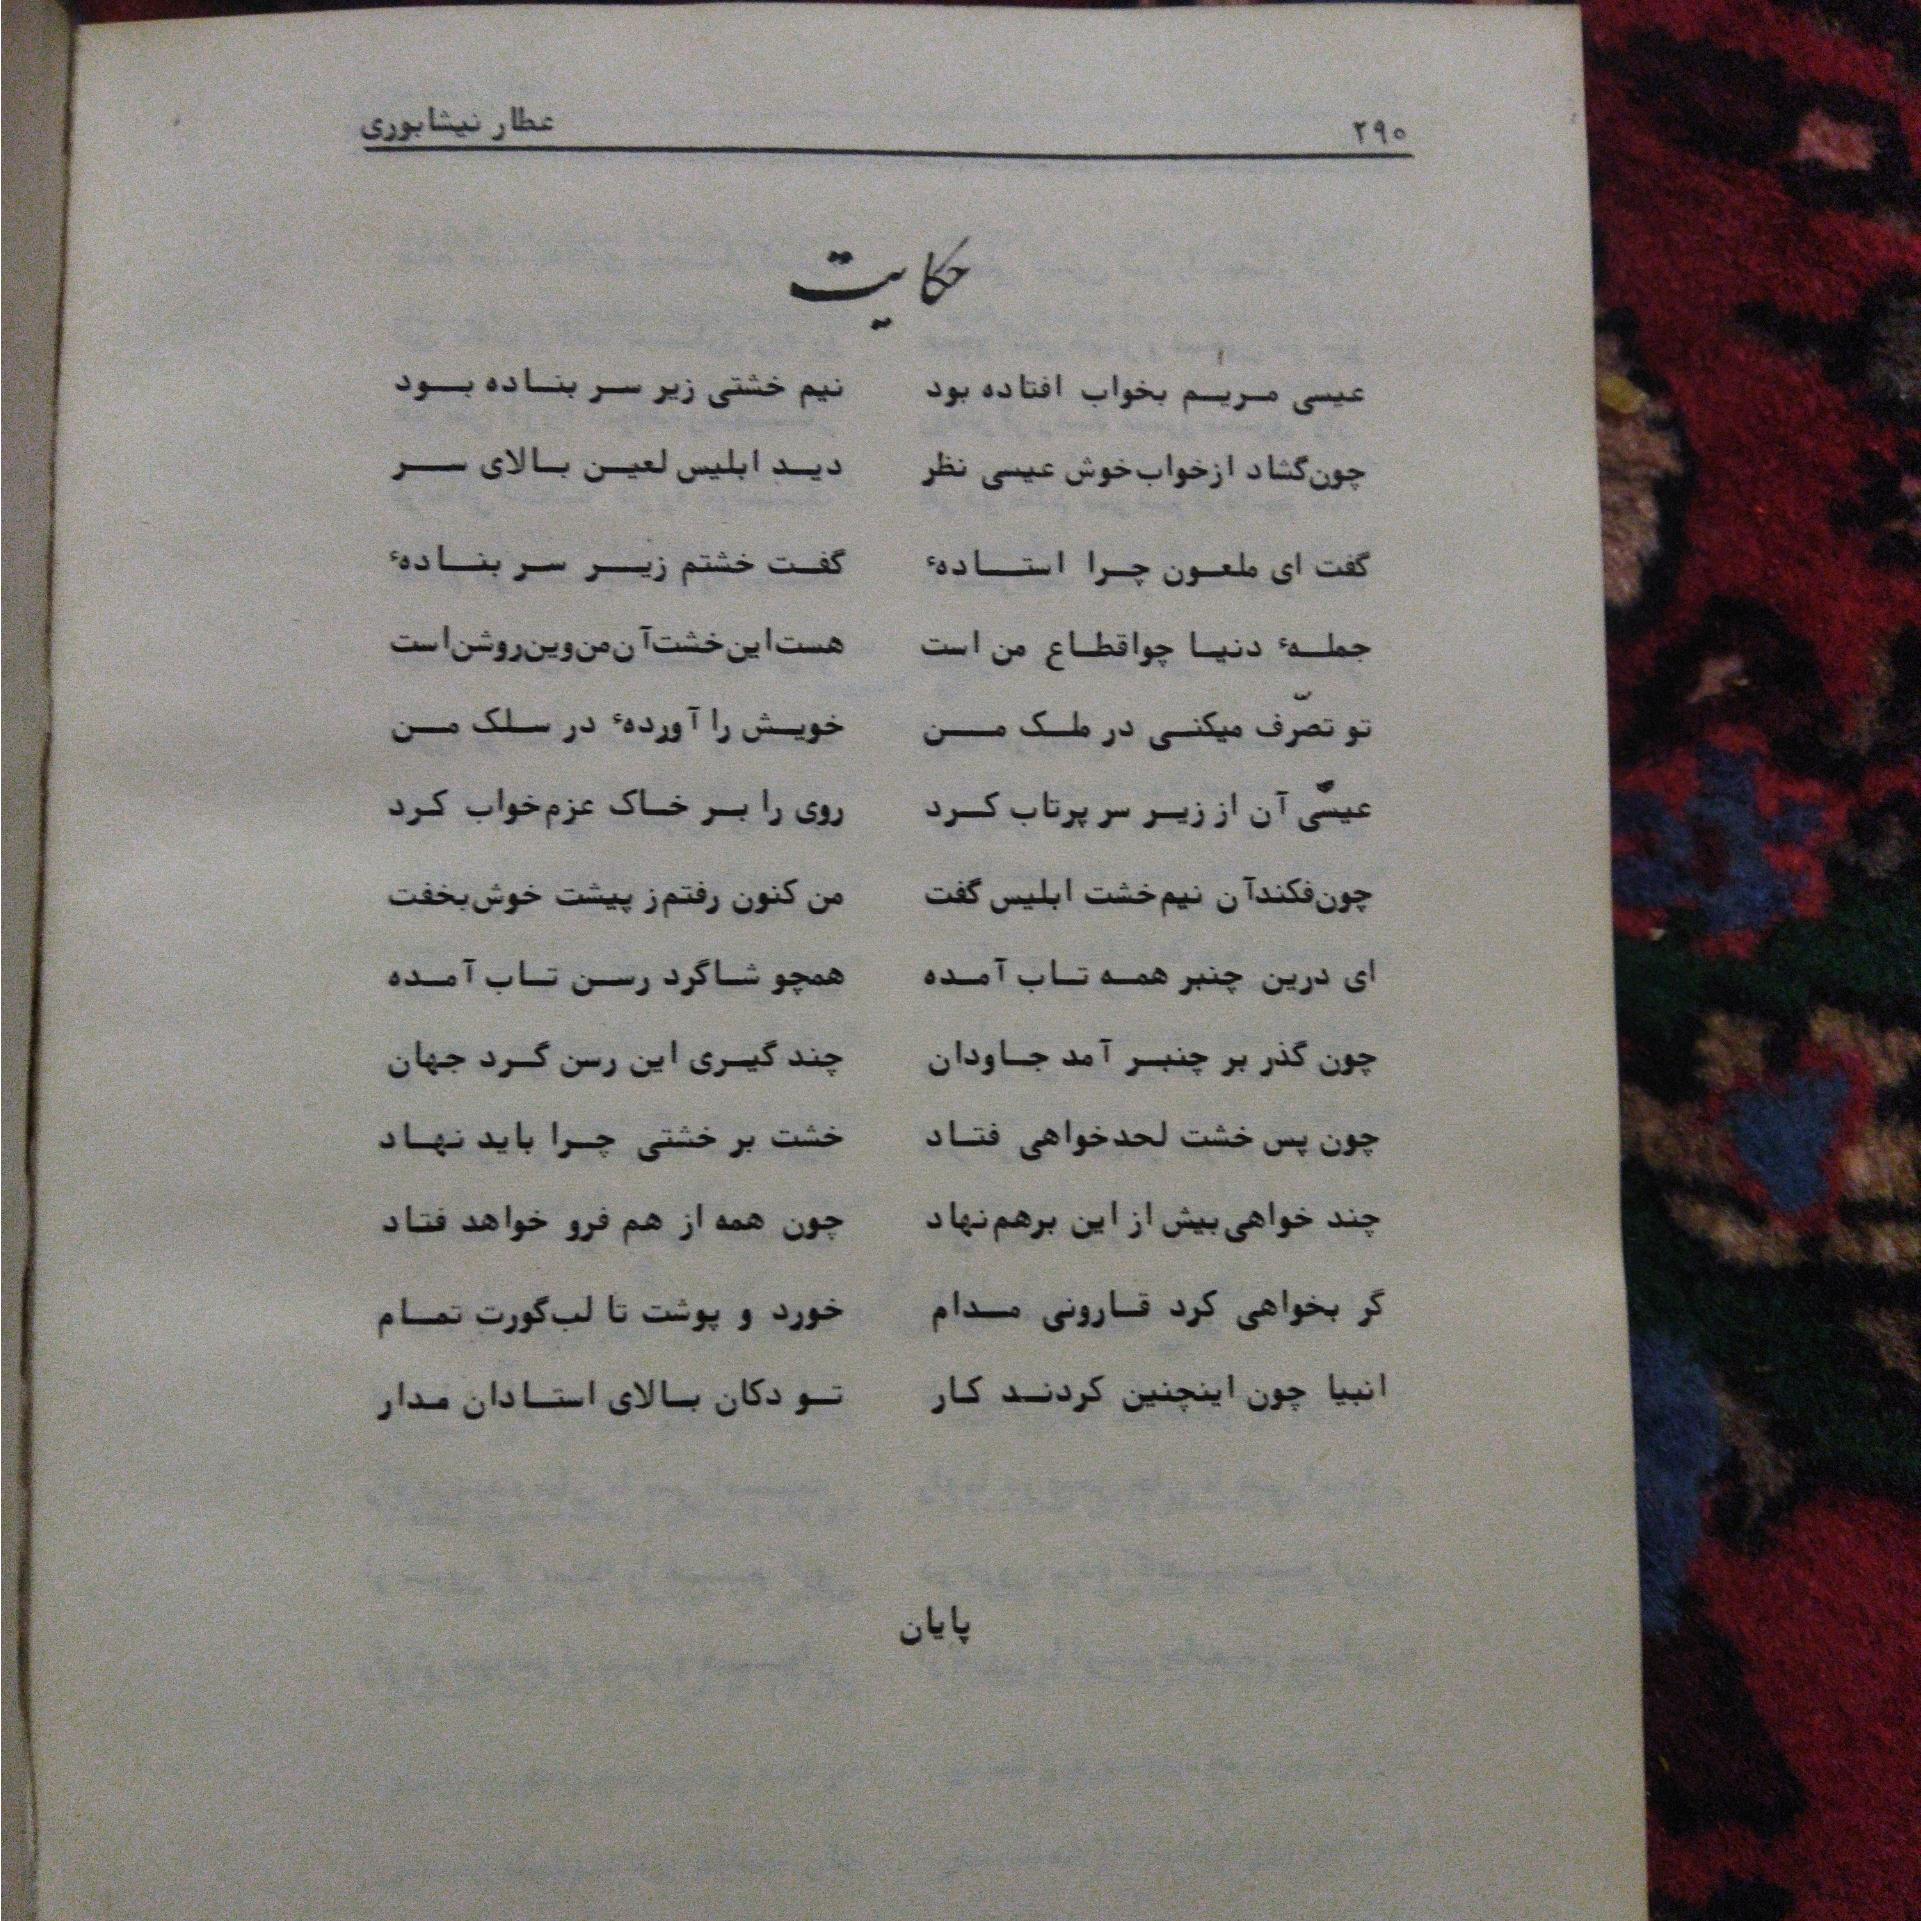 ۲۹۰ عطار نیشابوری
حکایت
عیسی مریم بخواب افتاده بود نیم خشتی زیر سر بنهاده بود
چون گشاد از خواب خوش عیسی نظر دید ابلیس لعین بالای سر
گفت ای ملعون چرا استادهٔ گفت خشتم زیر سر بنهادهٔ
جملهٔ دنیا چو اقطاع من است هست این خشت آن من وین روشن است
تو تصرّف میکنی در ملک من خویش را آوردهٔ در سلک من
عیسی آن از زیر سر پرتاب کرد روی را بر خاک عزم خواب کرد
چون فکند آن نیم خشت ابلیس گفت من کنون رفتم ز پیشت خوش بخفت
ای درین چنبر همه تاب آمده همچو شاگرد رسن تاب آمده
چون گذر بر چنبر آمد جاودان چند گیری این رسن گرد جهان
چون پس خشت لحد خواهی فتاد خشت بر خشتی چرا باید نهاد
چند خواهی بیش از این برهم نهاد چون همه از هم فرو خواهد فتاد
گر بخواهی کرد قارونی مدام خورد و پوشت تا لب گورت تمام
انبیا چون اینچنین کردند کار تو دکان بالای استادان مدار
پایان